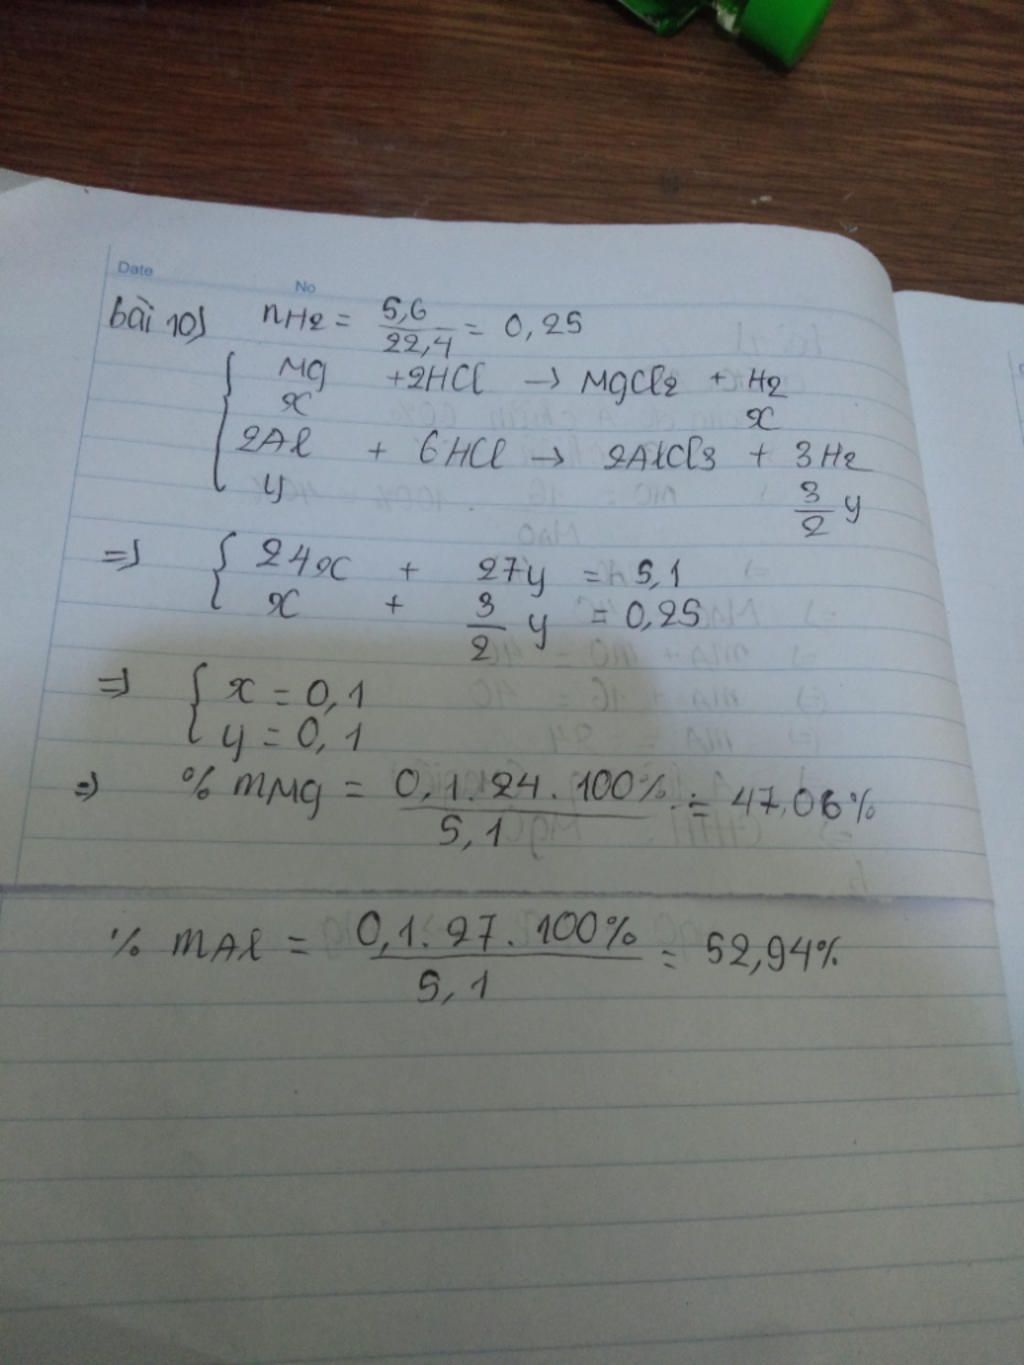 Date
No
bài 10) nH2 = 5,6/22,4 = 0,25
Mg +2HCl → MgCl2 + H2
x x
2Al + 6HCl → 2AlCl3 + 3H2
y 3/2 y
=> { 24x + 27y = 5,1
x + 3/2 y = 0,25
=> { x = 0,1
y = 0,1
=> % mMg = 0,1.24.100%/5,1 = 47,06%
% mAl = 0,1.27.100%/5,1 = 52,94%